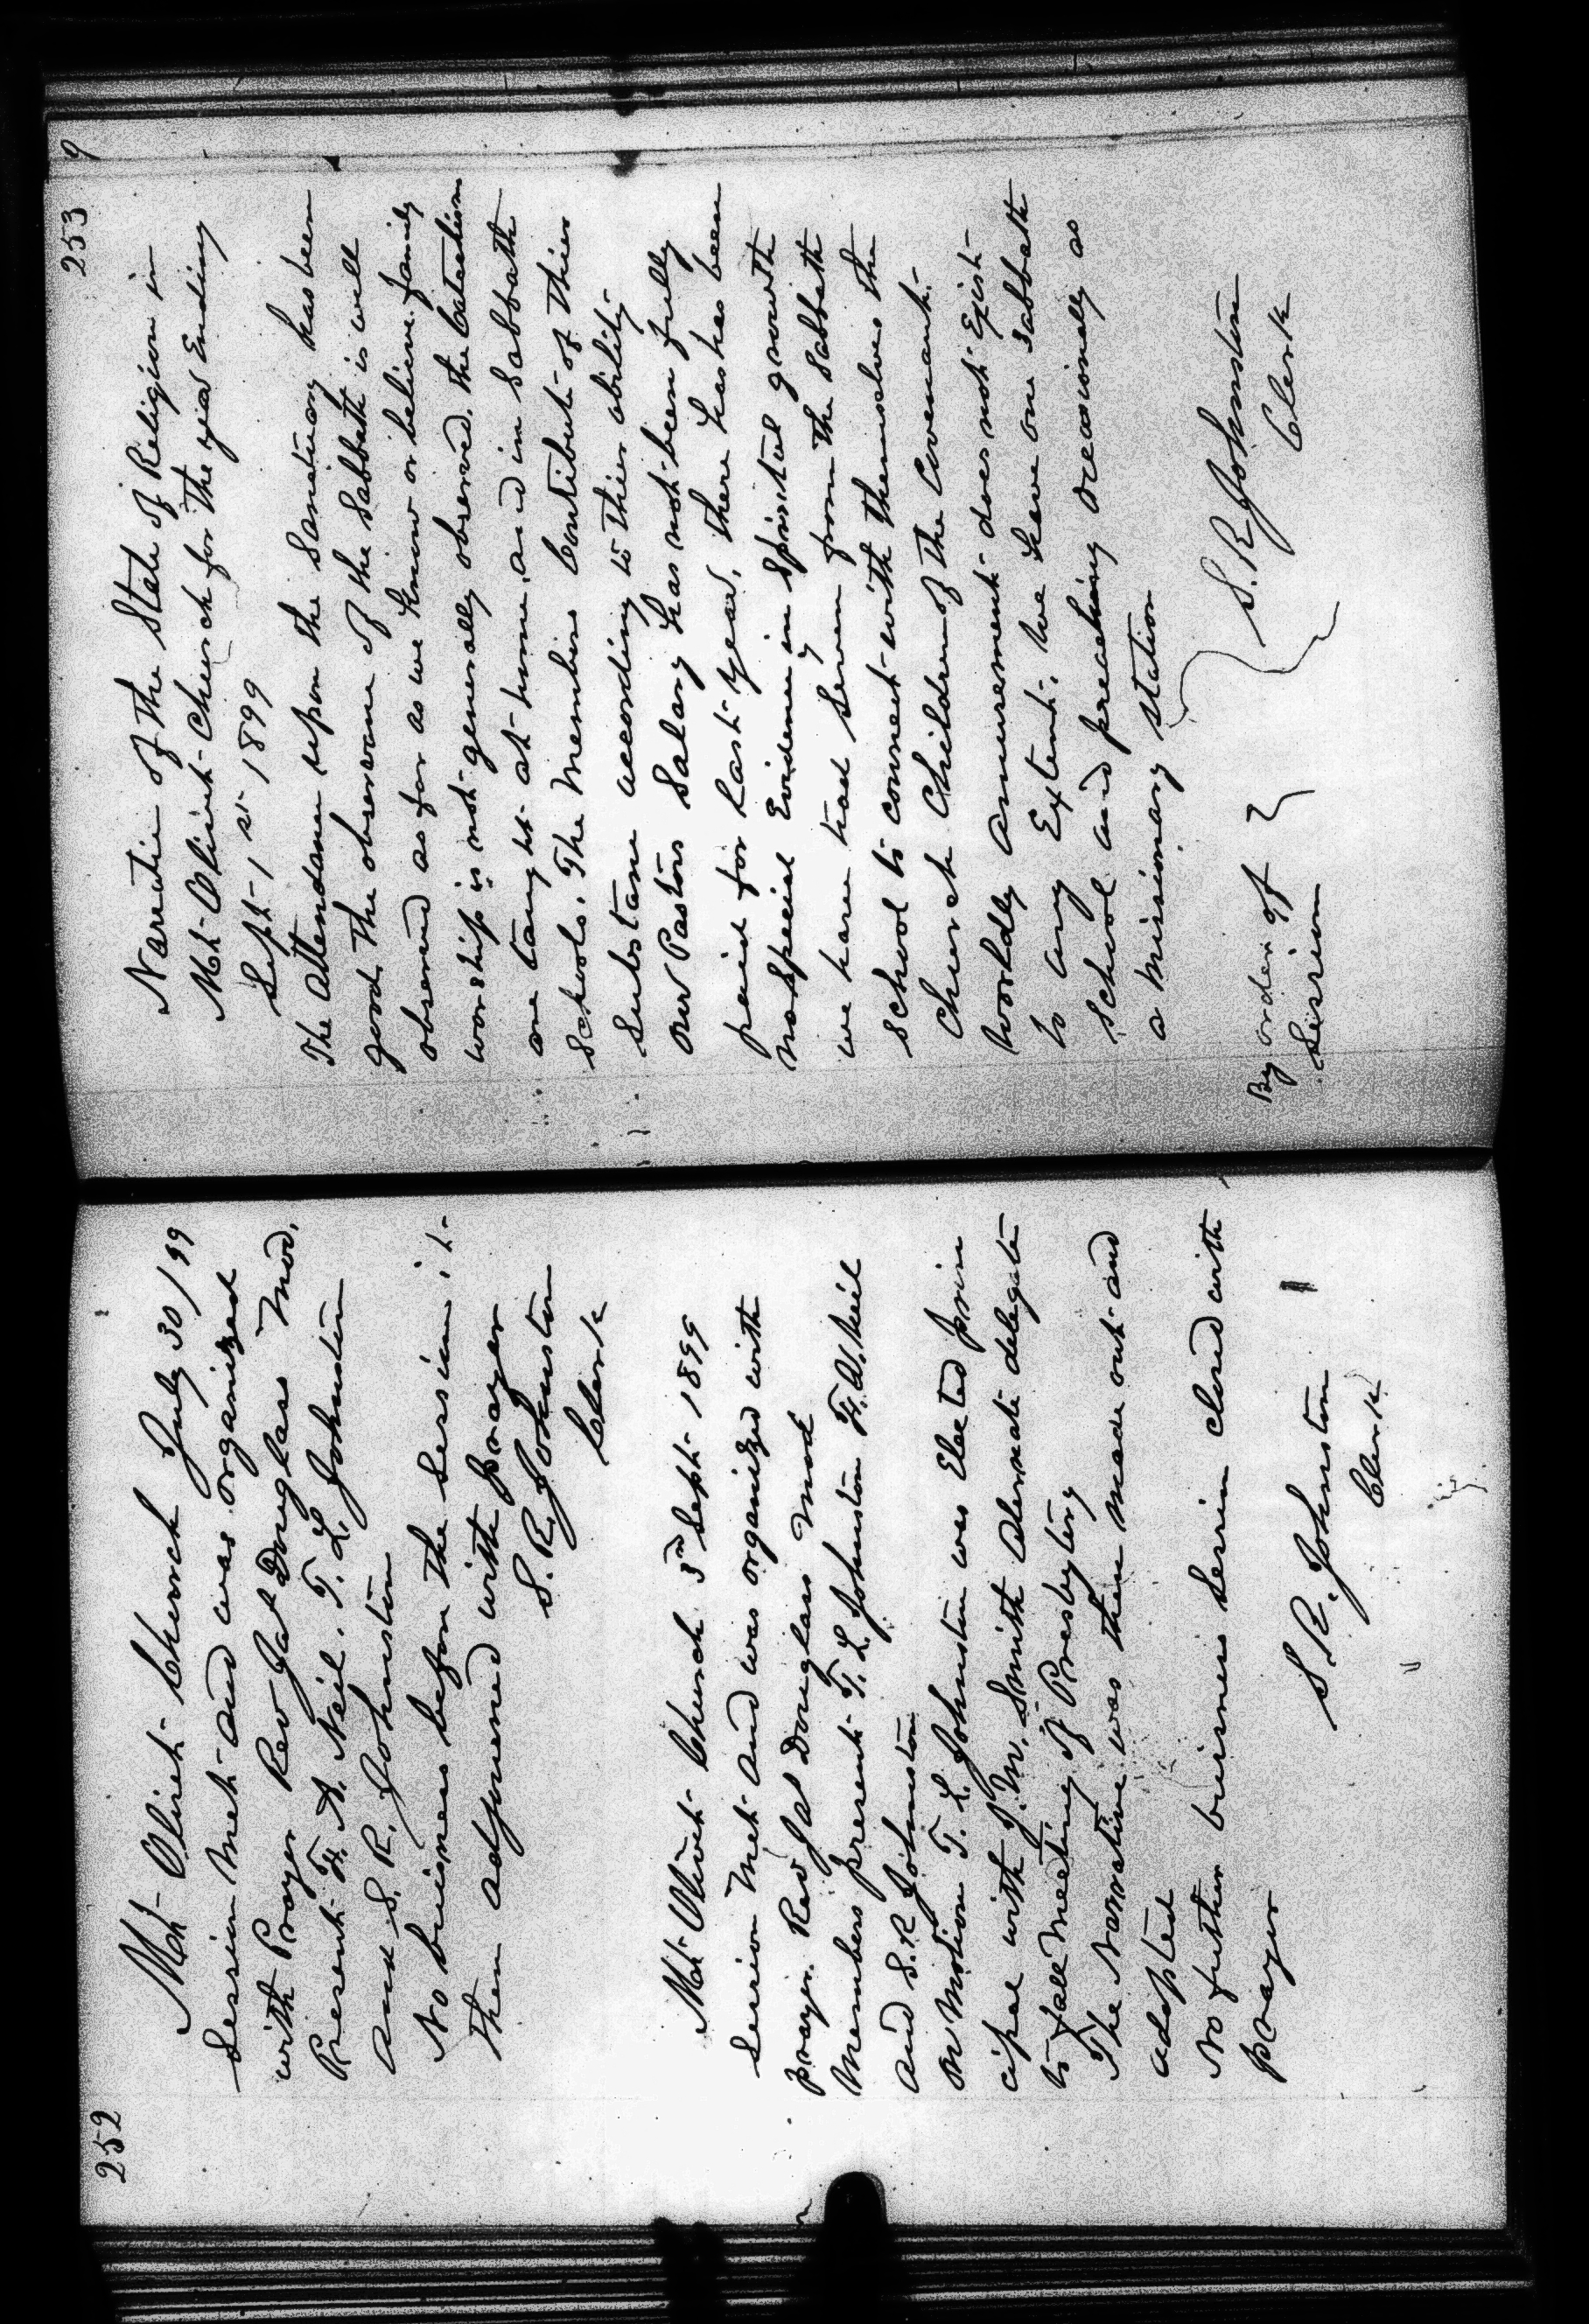 252
Mt- Olivet- Church July 30/99
Session Met- and was organized
with Prayer Rev Jas Douglas Mod.
Present- F. A. Neil. T. L. Johnston
and S. R. Johnston
No business before the Session it-
then adjourned with prayer
S. R. Johnston
Clerk
Mt- Olivet- Church 3rd Sept- 1899
Session Met- and was organized with
prayer. Rev Jas Douglass Mod
Members present- T. L Johnston F. A. Neil
and S. R Johnston
on Motion T. L. Johnston was Elected prin
cipal with J. M. Smith alternate delegate
to fall Meeting of Presbytery
The Narrative was then made out- and
adopted
No further business Session closed with
prayer
S R. Johnston
Clerk
253
9
Narrative of the State of Religion in
Mt- Olivet- Church for the year Ending
Sept- 1st- 1899
The attendance upon the Sanctuary has been
good. The observance of the Sabbath is well
observed as far as we know or believe. family
worship is not- generally observed. The Catechism
are taught- at- home, and in Sabbath
Schools. The Members Contribute of thier
Substance according to thier ability-
our Pastors Salary has not- been fully
paid for Last- Year. There has has been
no special Evidence in Spirital growth
we have had Seven from the Sabbath
School to connect- with themselves the
Church Children of the Covenant-
Worldly amusement- does not- Exist-
to any Extent-. we have one Sabbath
School and preaching occasionally as
a missionary station
By order of
Session
S. R Johnston
Clerk